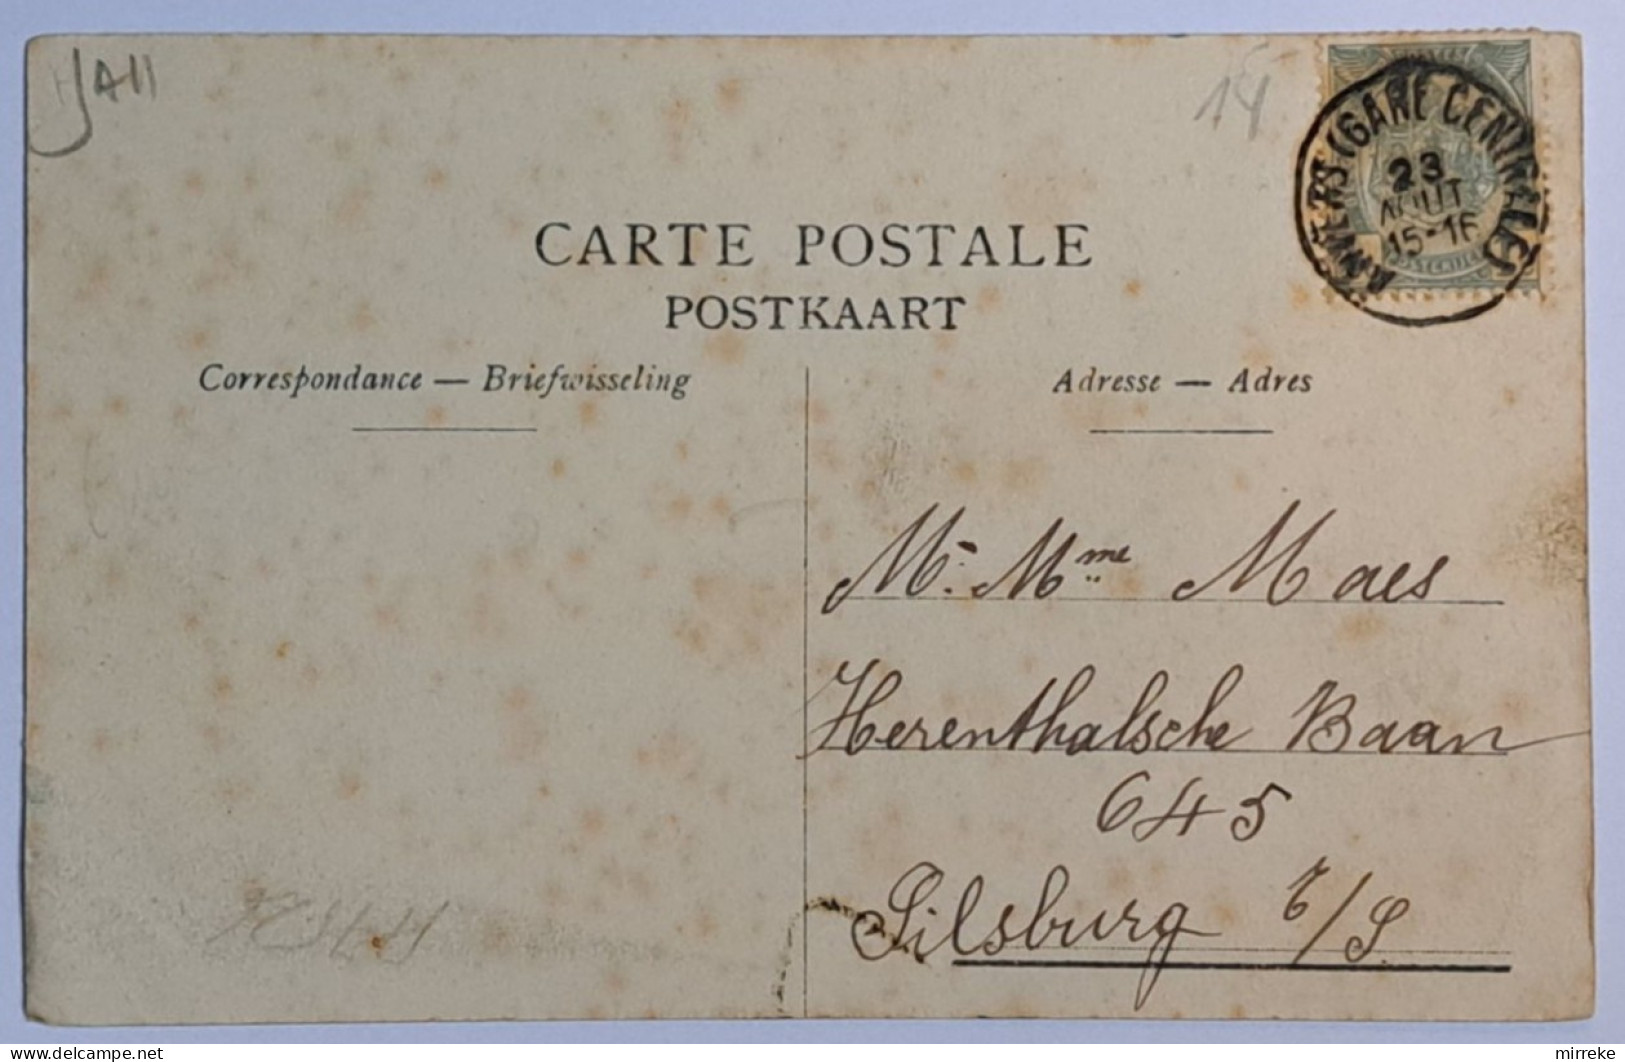 14
ANVERS (GARE CENTRALE)
23
AOUT
15-16
CARTE POSTALE
POSTKAART
Correspondance — Briefwisseling
Adresse — Adres
Mr. Mme Maes
Herenthalsche Baan
645
Silsburg t/S.
delcampe.net
mirreke